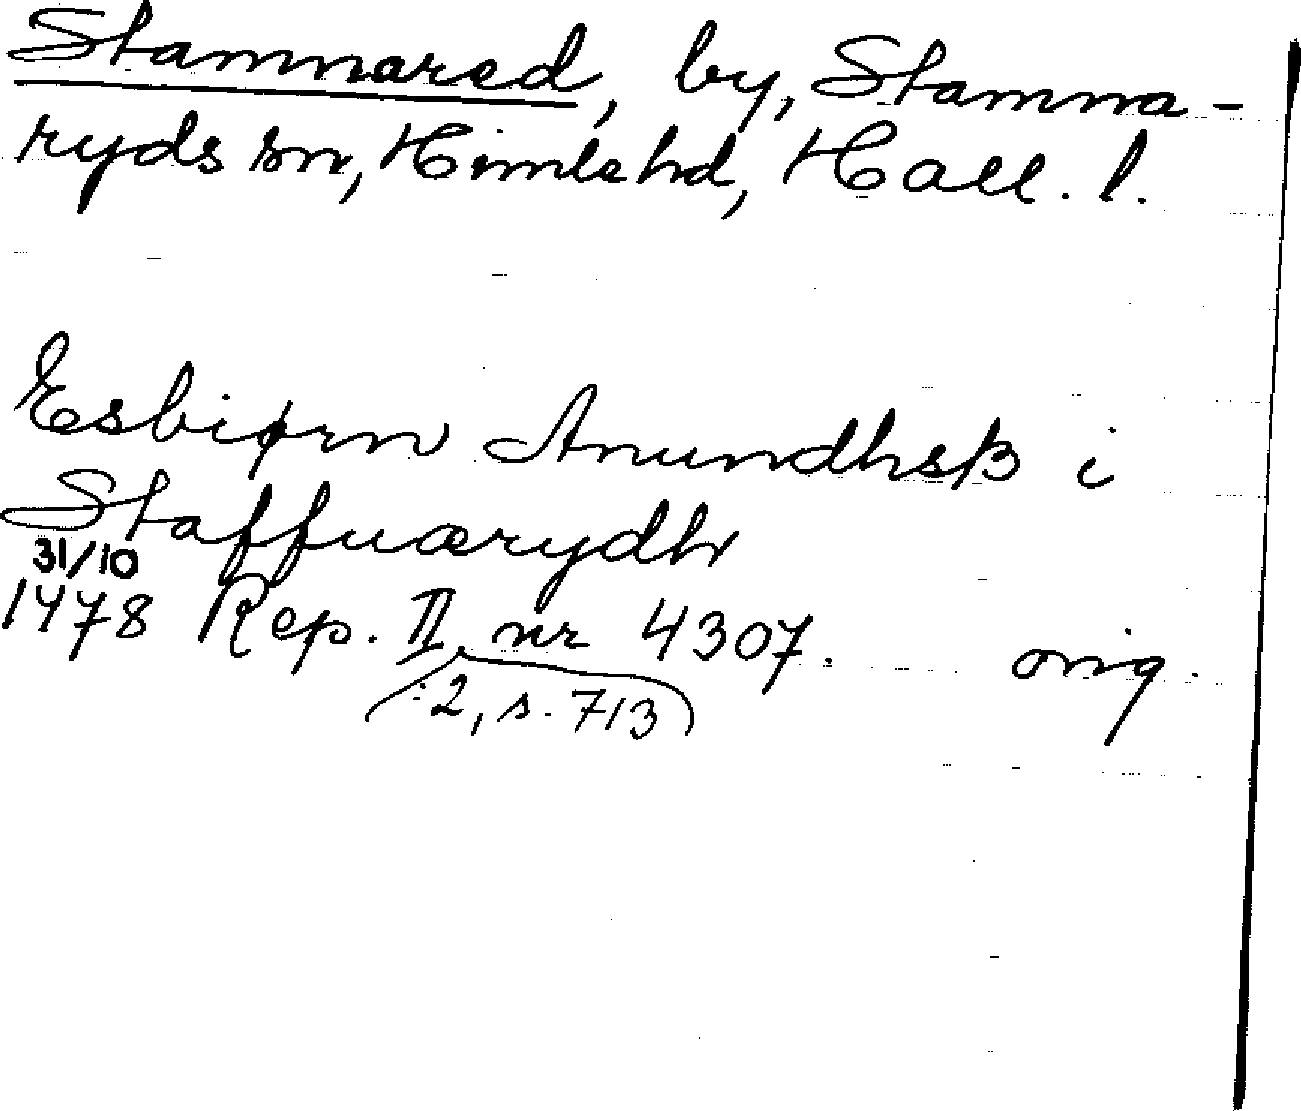 Stamnared, by, Stamna-
ryds sn, Himle hd, Hall. l.
Esbiørn Anundhsß i
Staffuærydh
31/10
1478 Rep. II nr 4307. orig.
:2, s. 713